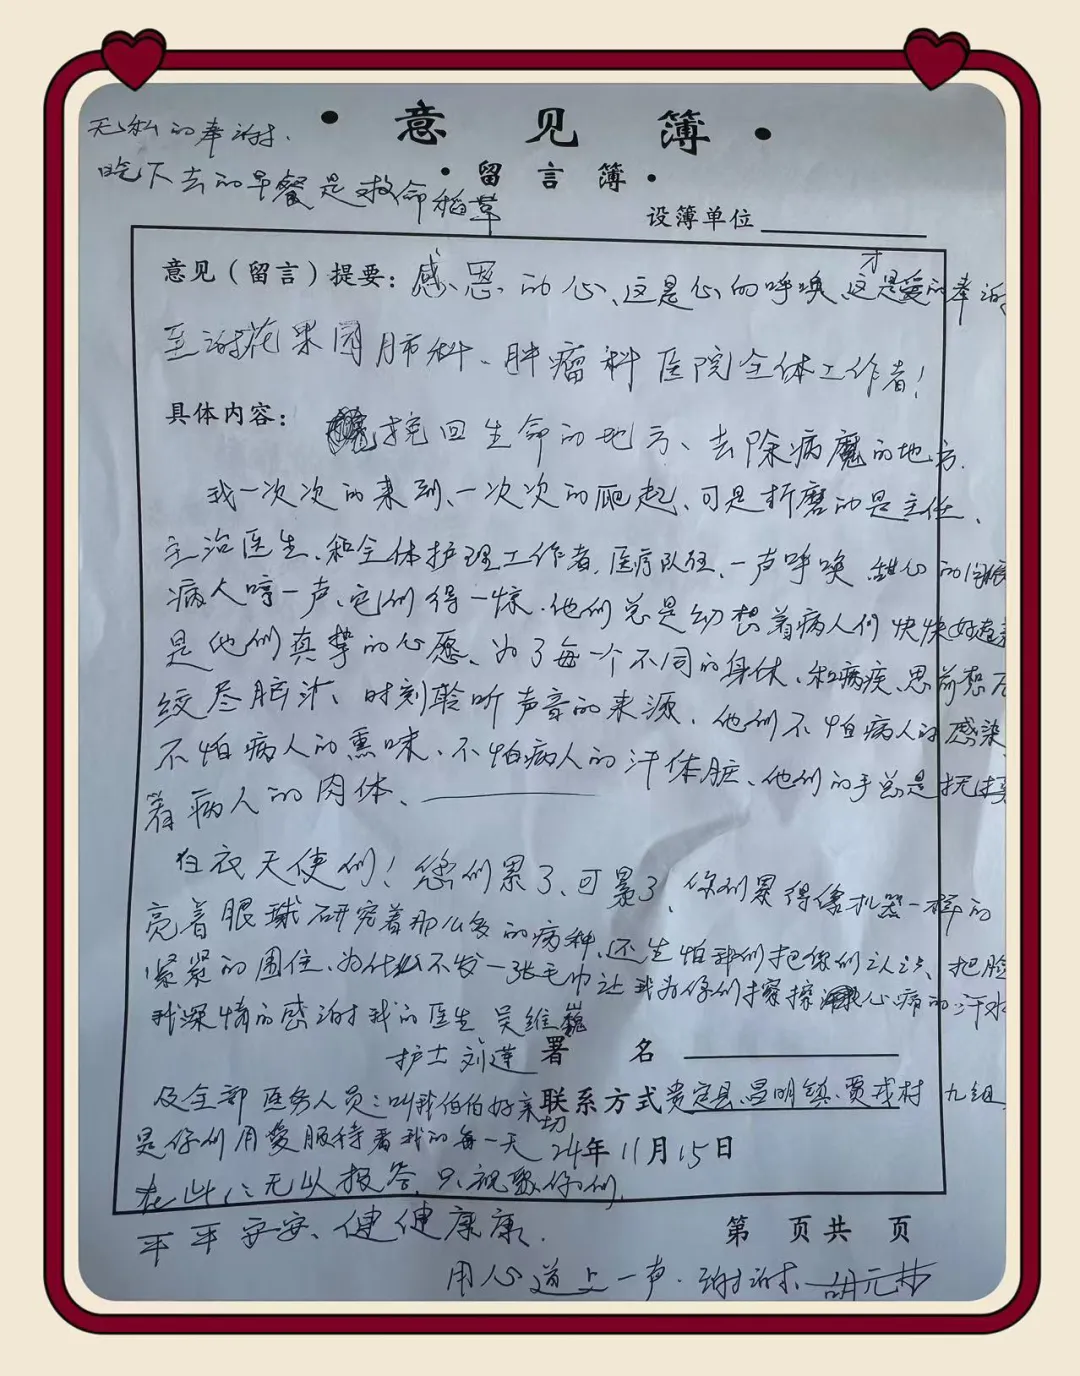 无私的奉谢.
• 意见簿 •
吃下去的早餐是救命稻草
• 留言簿 •
设簿单位
意见（留言）提要：感恩的心、这是心的呼唤、这才是爱的奉谢
至谢花果园肺科、肿瘤科医院全体工作者！
具体内容：挽回生命的地方、去除病魔的地方.
我一次次的来到、一次次的爬起、可是折磨的是主任、
主治医生、和全体护理工作者.医疗队伍、一声呼唤 甜心的问候
病人哼一声、它们得一惊.他们总是幻想着病人们快快好起
是他们真挚的心愿、为了每一个不同的身体、和病疾、思前想
绞尽脑汁、时刻聆听声音的来源.他们不怕病人的感染
不怕病人的熏味、不怕病人的汗体脏、他们的手总是抚摸
着病人的肉体、
白衣天使们！您们累了、可累了、你们累得像机器一样的
亮着眼球研究着那么多的病种、还生怕我们把你们认识、把脸
紧紧的围住、为什么不发一张毛巾让我为你们擦擦心病的汗水
我深情的感谢我的医生 吴维巍
护士 刘莲 署 名
及全部医务人员：叫我伯伯好亲切 联系方式 贵定县、昌明镇、贾戎村 九组
是你们用爱服侍着我的每一天 24年11月15日
在此：无以报答、只祝愿你们、
平平安安、健健康康、
第 页共 页
用心道上一声.谢谢、胡元